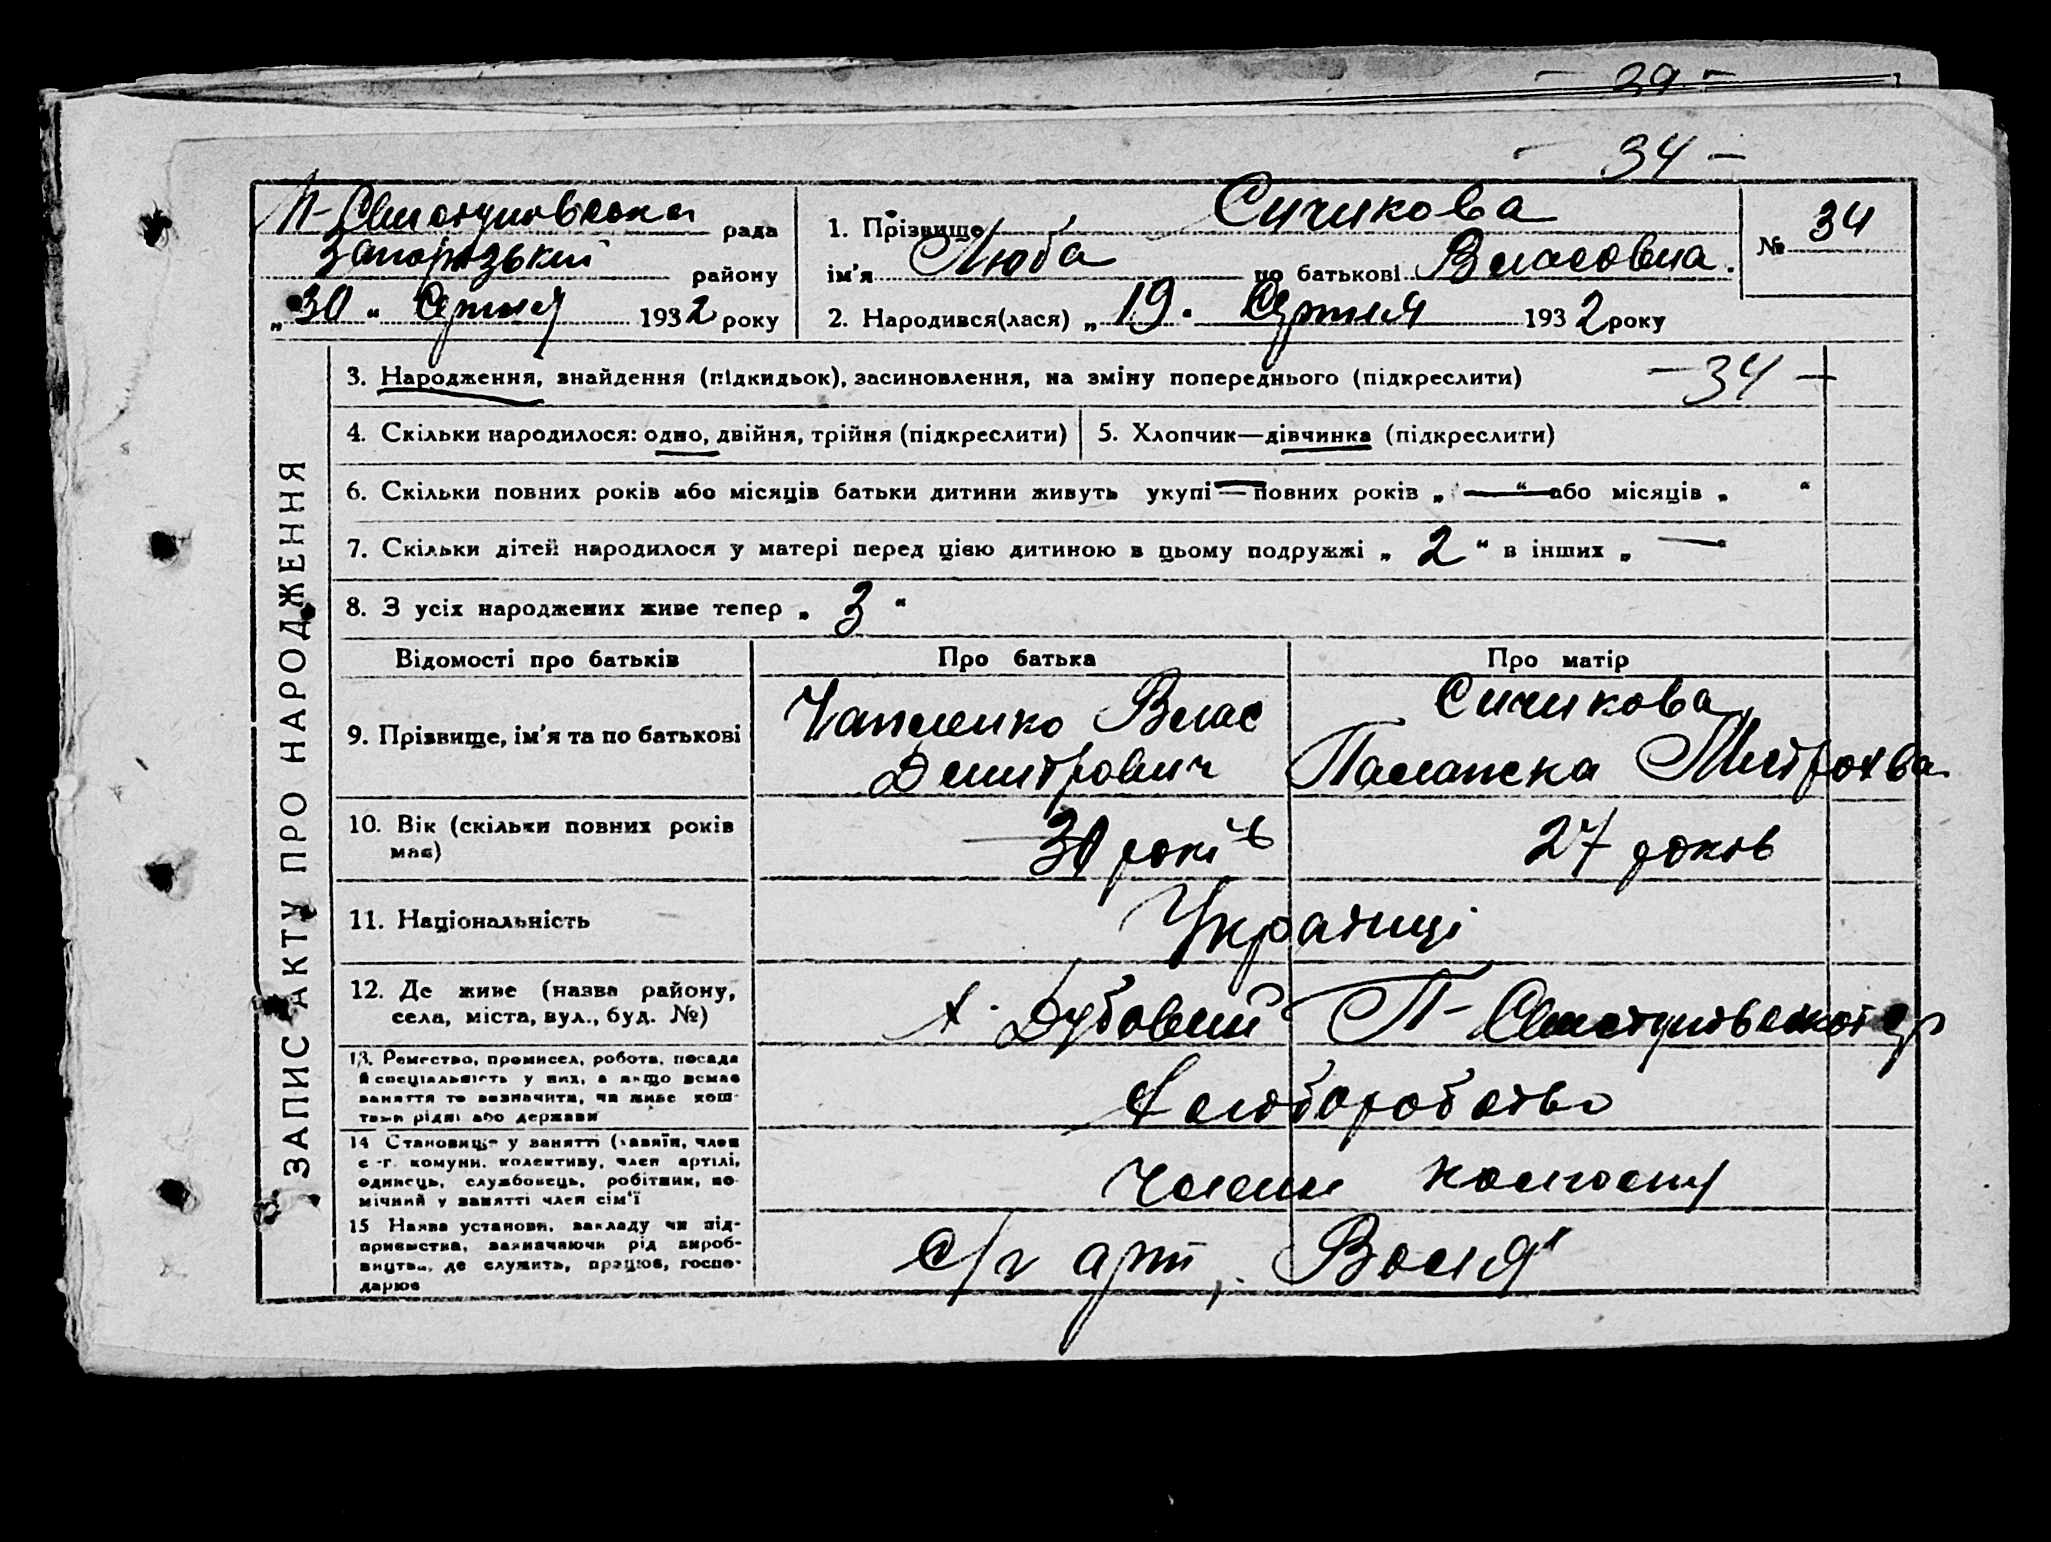 - 39 -
- 34 -
П-Свистуновська рада
Запорізький району
„30“ Серпня 1932 року
1. Прізвище Сичикова
ім'я Люба по батькові Власовна.
№ 34
2. Народився(лася) „19“ Серпня 1932 року
ЗАПИС АКТУ ПРО НАРОДЖЕННЯ
3. Народження, знайдення (підкидьок), засиновлення, на зміну попереднього (підкреслити) - 34 -
4. Скільки народилося: одно, двійня, трійня (підкреслити)
5. Хлопчик—дівчинка (підкреслити)
6. Скільки повних років або місяців батьки дитини живуть укупі — повних років „—“ або місяців „ “
7. Скільки дітей народилося у матері перед цією дитиною в цьому подружжі „2“ в інших „—“
8. З усіх народжених живе тепер „3“
Відомості про батьків
Про батька
Про матір
9. Прізвище, ім'я та по батькові
Чапленко Влас
Дмитрович
Сичикова
Палажка Митрохва
10. Вік (скільки повних років
має)
30 років
27 років
11. Національність
Українці
12. Де живе (назва району,
села, міста, вул., буд. №)
х. Дубовий П-Свистуновської с/р
13. Ремество, промисел, робота, посада
й спеціяльність у них, а якщо немає
заняття то зазначити, чи живе кош-
тами рідні або держави
Хліборобство
14 Становище у занятті (хазяїн, член
с.-г. комуни, колективу, член артілі,
одинець, службовець, робітник, по-
мічний у занятті член сім'ї
Члени колгоспу
15 Назва установи, закладу чи під-
приємства, зазначаючи рід вироб-
ництва, де служить, працює, госпо-
дарює
с/г арт, „Воля“